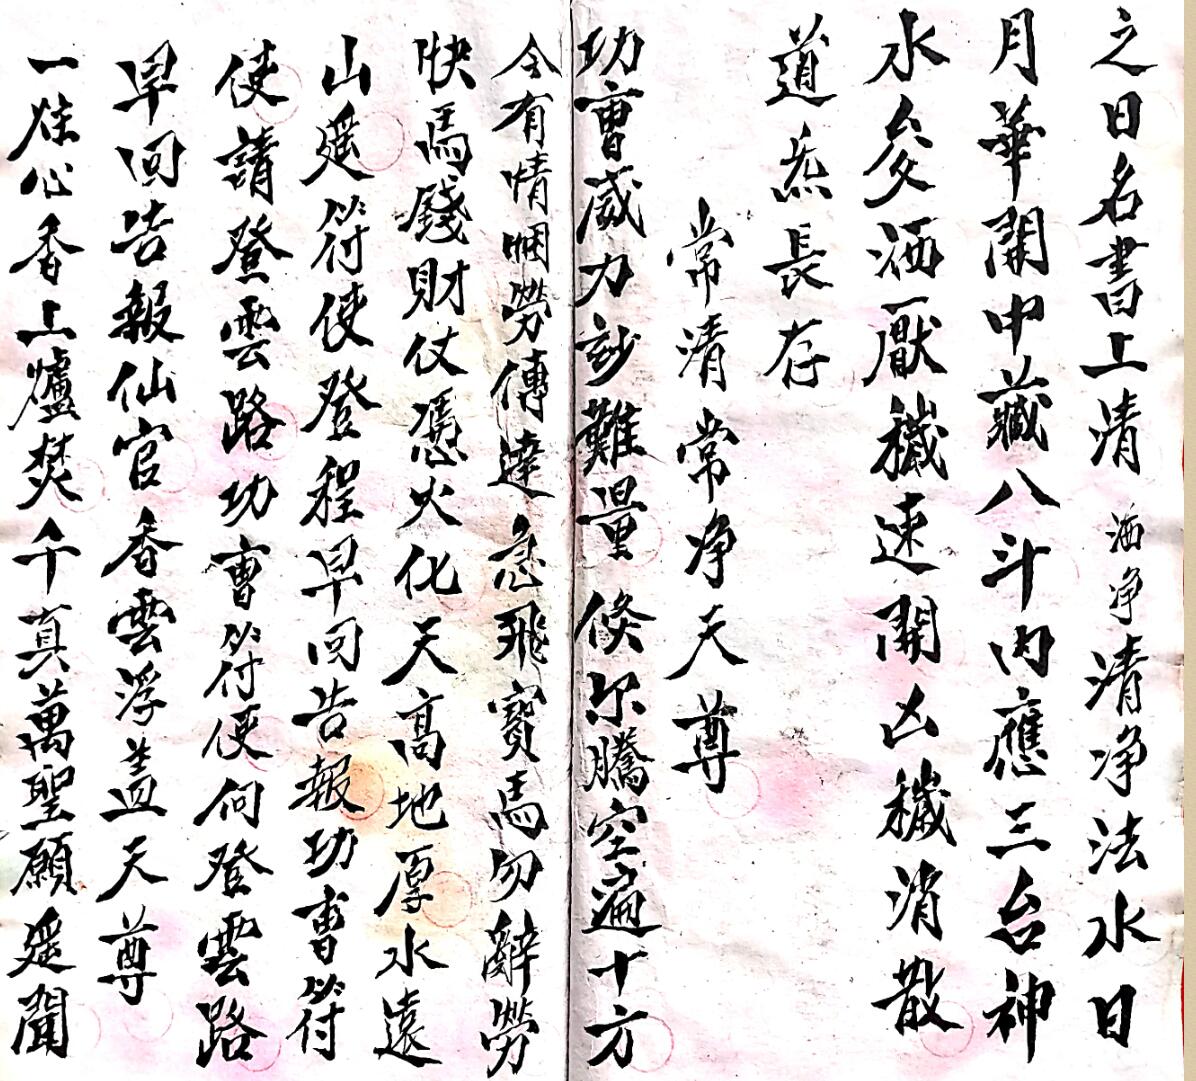 之日名書上清 洒净清净法水日
月華開中藏八斗内應三台神
水灸洒厭穢速開凶穢消散
道炁長存
常清常净天尊
功曹威力玅難量倏尔騰空遍十方
今有情悃勞傳達急飛寶馬勿辭勞
快馬錢財仗憑火化天高地厚水遠
山遥符使登程早回告報功曹符
使請登雲路功曹符使何登雲路
早回告報仙官香雲浮盖天尊
一炷心香上爐焚千真萬聖願遥聞